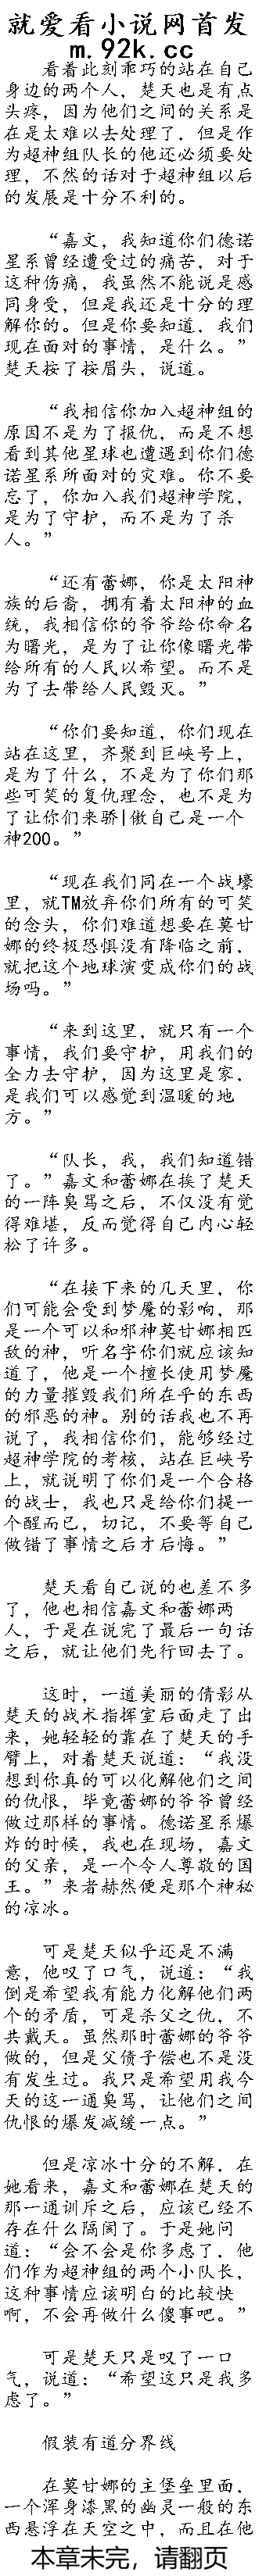 就爱看小说网首发
m.92k.cc
看着此刻乖巧的站在自己
身边的两个人，楚天也是有点
头疼，因为他们之间的关系是
在是太难以去处理了，但是作
为超神组队长的他还必须要处
理，不然的话对于超神组以后
的发展是十分不利的。
“嘉文，我知道你们德诺
星系曾经遭受过的痛苦，对于
这种伤痛，我虽然不能说是感
同身受，但是我还是十分的理
解你的。但是你要知道，我们
现在面对的事情，是什么。”
楚天按了按眉头，说道。
“我相信你加入超神组的
原因不是为了报仇，而是不想
看到其他星球也遭遇到你们德
诺星系所面对的灾难。你不要
忘了，你加入我们超神学院，
是为了守护，而不是为了杀
人。”
“还有蕾娜，你是太阳神
族的后裔，拥有着太阳神的血
统，我相信你的爷爷给你命名
为曙光，是为了让你像曙光带
给所有的人民以希望。而不是
为了去带给人民毁灭。”
“你们要知道，你们现在
站在这里，齐聚到巨峡号上，
是为了什么，不是为了你们那
些可笑的复仇理念，也不是为
了让你们来骄|傲自己是一个
神200。”
“现在我们同在一个战壕
里，就TM放弃你们所有的可笑
的念头，你们难道想要在莫甘
娜的终极恐惧没有降临之前，
就把这个地球演变成你们的战
场吗。”
“来到这里，就只有一个
事情，我们要守护，用我们的
全力去守护，因为这里是家，
是我们可以感觉到温暖的地
方。”
“队长，我，我们知道错
了。”嘉文和蕾娜在挨了楚天
的一阵臭骂之后，不仅没有觉
得难堪，反而觉得自己内心轻
松了许多。
“在接下来的几天里，你
们可能会受到梦魇的影响，那
是一个可以和邪神莫甘娜相匹
敌的神，听名字你们就应该知
道了，他是一个擅长使用梦魇
的力量摧毁我们所在乎的东西
的邪恶的神。别的话我也不再
说了，我相信你们，能够经过
超神学院的考核，站在巨峡号
上，就说明了你们是一个合格
的战士，我也只是给你们提一
个醒而已，切记，不要等自己
做错了事情之后才后悔。”
楚天看自己说的也差不多
了，他也相信嘉文和蕾娜两
人，于是在说完了最后一句话
之后，就让他们先行回去了。
这时，一道美丽的倩影从
楚天的战术指挥室后面走了出
来，她轻轻的靠在了楚天的手
臂上，对着楚天说道：“我没
想到你真的可以化解他们之间
的仇恨，毕竟蕾娜的爷爷曾经
做过那样的事情。德诺星系爆
炸的时候，我也在现场，嘉文
的父亲，是一个令人尊敬的国
王。”来者赫然便是那个神秘
的凉冰。
可是楚天似乎还是不满
意，他叹了口气，说道：“我
倒是希望我有能力化解他们两
个的矛盾，可是杀父之仇，不
共戴天。虽然那时蕾娜的爷爷
做的，但是父债子偿也不是没
有发生过。我只是希望用我今
天的这一通臭骂，让他们之间
仇恨的爆发减缓一点。”
但是凉冰十分的不解，在
她看来，嘉文和蕾娜在楚天的
那一通训斥之后，应该已经不
存在什么隔阂了。于是她问
道：“会不会是你多虑了，他
们作为超神组的两个小队长，
这种事情应该明白的比较快
啊，不会再做什么傻事吧。”
可是楚天只是叹了一口
气，说道：“希望这只是我多
虑了。”
假装有道分界线
在莫甘娜的主堡垒里面，
一个浑身漆黑的幽灵一般的东
西悬浮在天空之中，而且在他
本章未完，请翻页